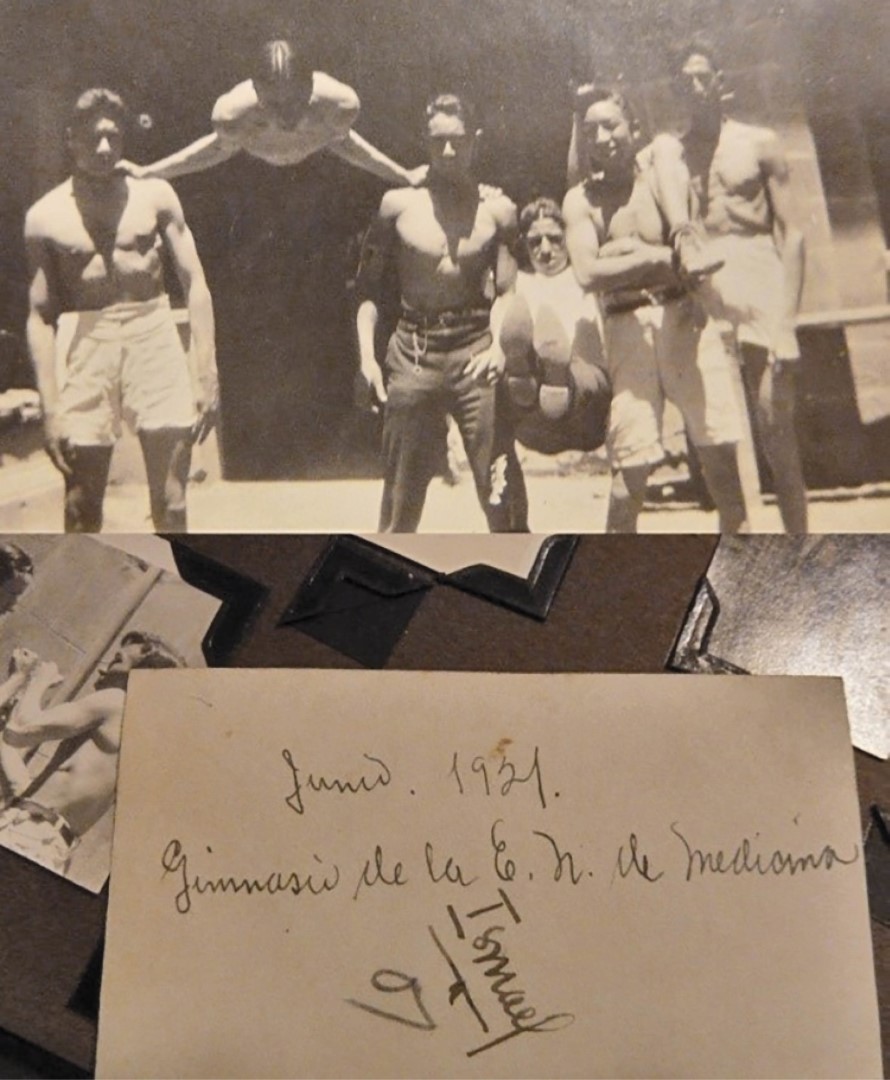 Junio. 1921.
Gimnasio de la E. N. de Medicina
Ismael